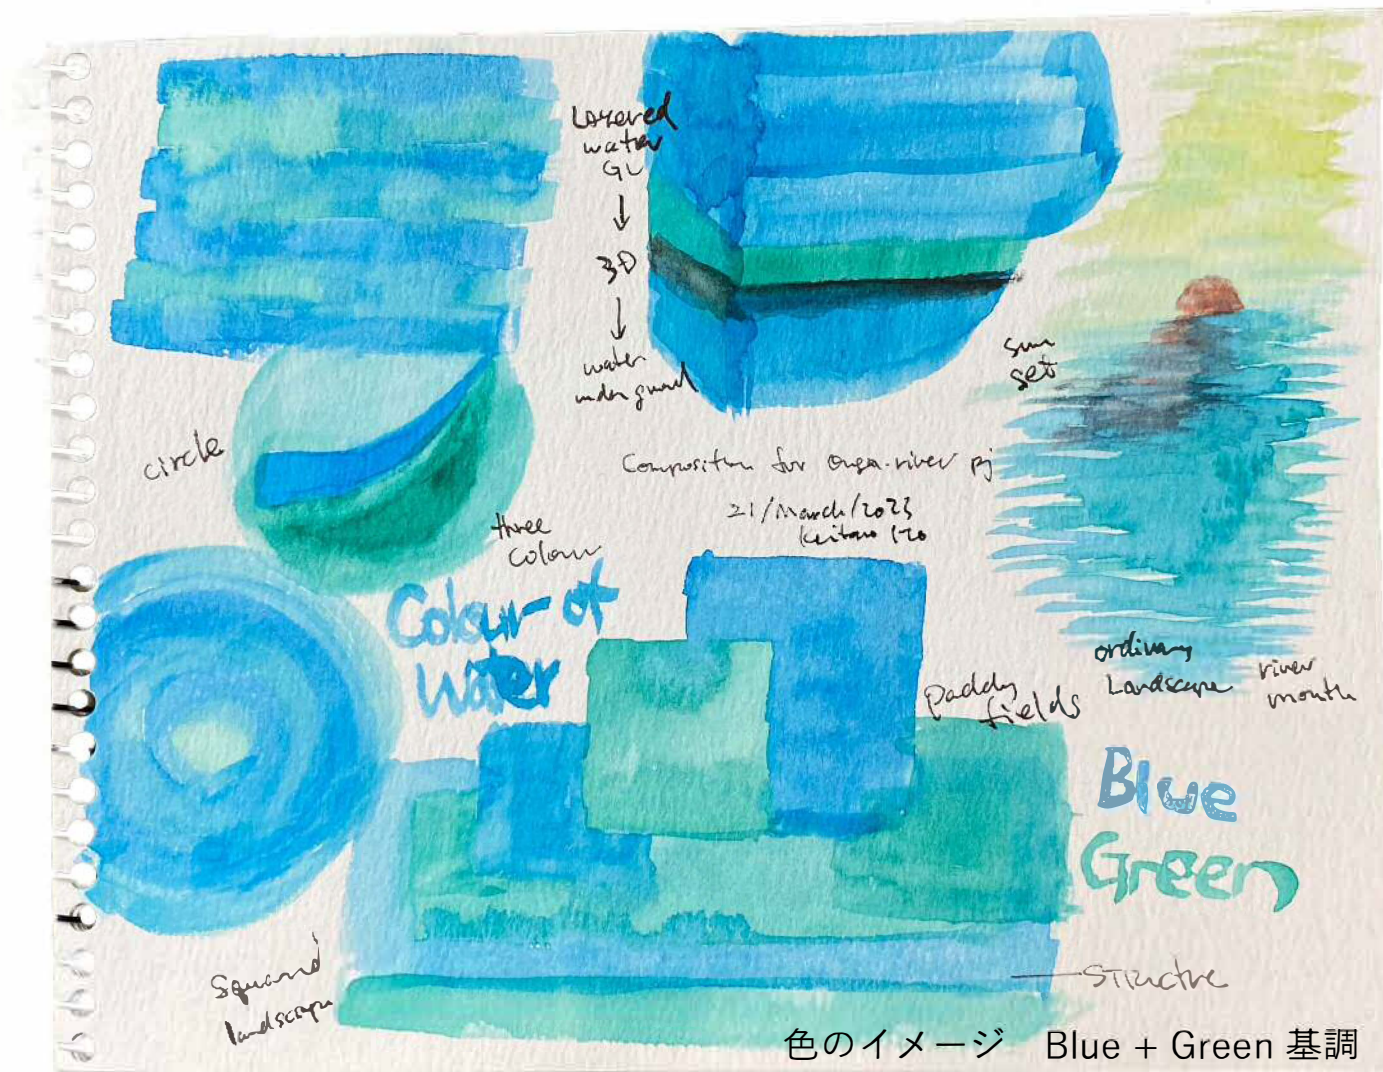 Layered
water
GL
3D
water
under
circle
three
colour
sun
set
Composition for Onga-river pj
21/March/2023
Keitaro Ito
Colour of
Water
paddy
fields
ordinary
Landscape
river
mouth
Blue
Green
Squared
landscape
Structre
色のイメージ　Blue + Green 基調